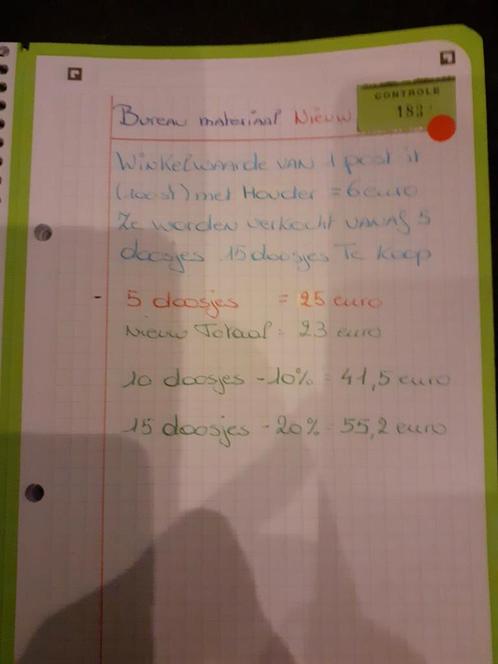 CONTROLE
183
Bureau materiaal Nieuw
Winkelwaarde van 1 post it
(100st) met Houder = 6 euro
Ze worden verkocht vanaf 5
doosjes 15 doosjes Te koop
- 5 doosjes = 25 euro
Nieuw Totaal = 23 euro
10 doosjes -10% = 41,5 euro
15 doosjes -20% = 55,2 euro